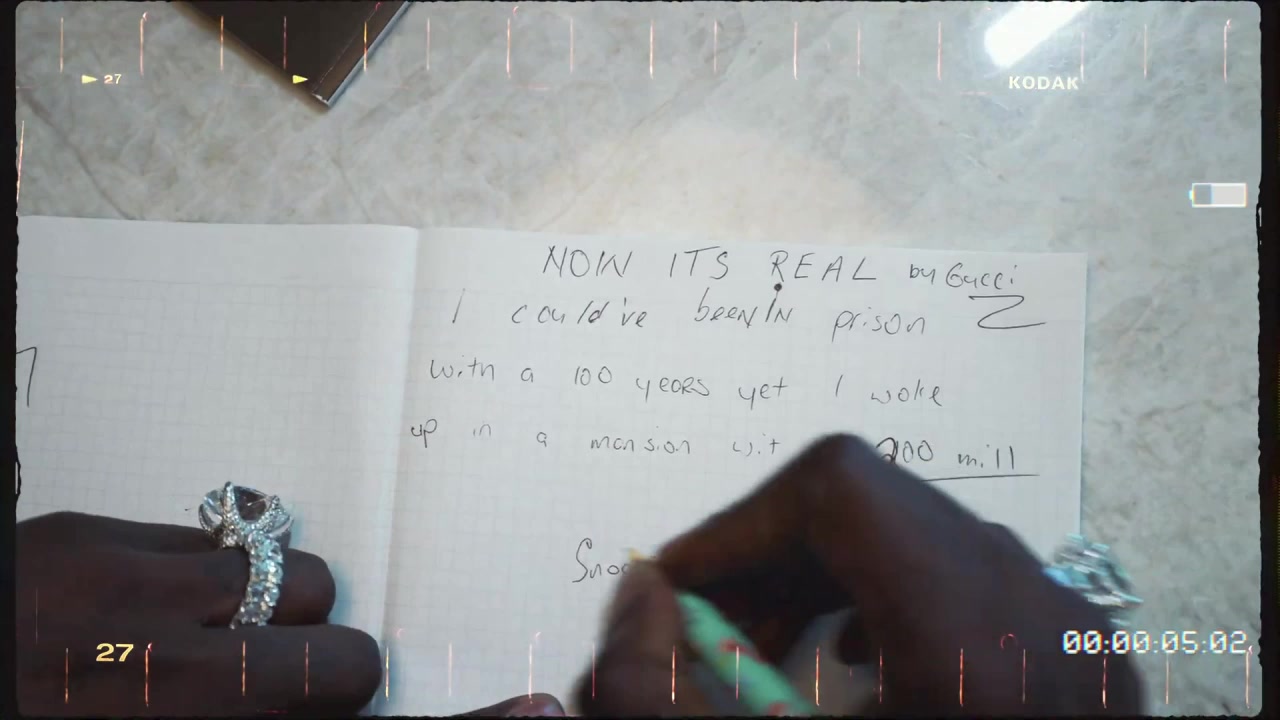 27
KODAK
NOW ITS REAL by Gucci
I could've been IN prison
with a 100 years yet I woke
up in a mansion wit 200 mill
Snoo
27
00:00:05:02